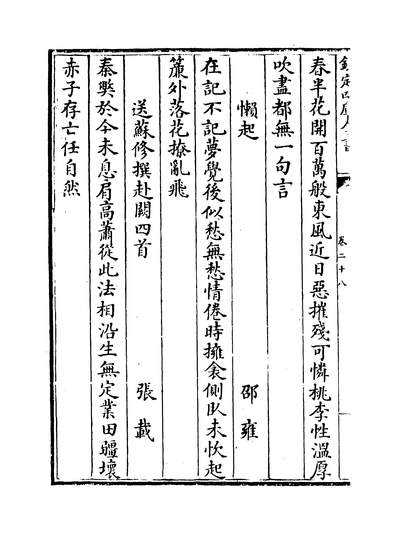 欽定四庫全書
卷二十八
春半花開百萬般東風近日惡摧殘可憐桃李性溫厚
吹盡都無一句言
懶起　邵雍
在記不記夢覺後似愁無愁情倦時擁衾側臥未忺起
簾外落花撩亂飛
送蘇修撰赴闕四首　張載
秦獘於今未息肩高蕭從此法相沿生無定業田疆壞
赤子存亡任自然